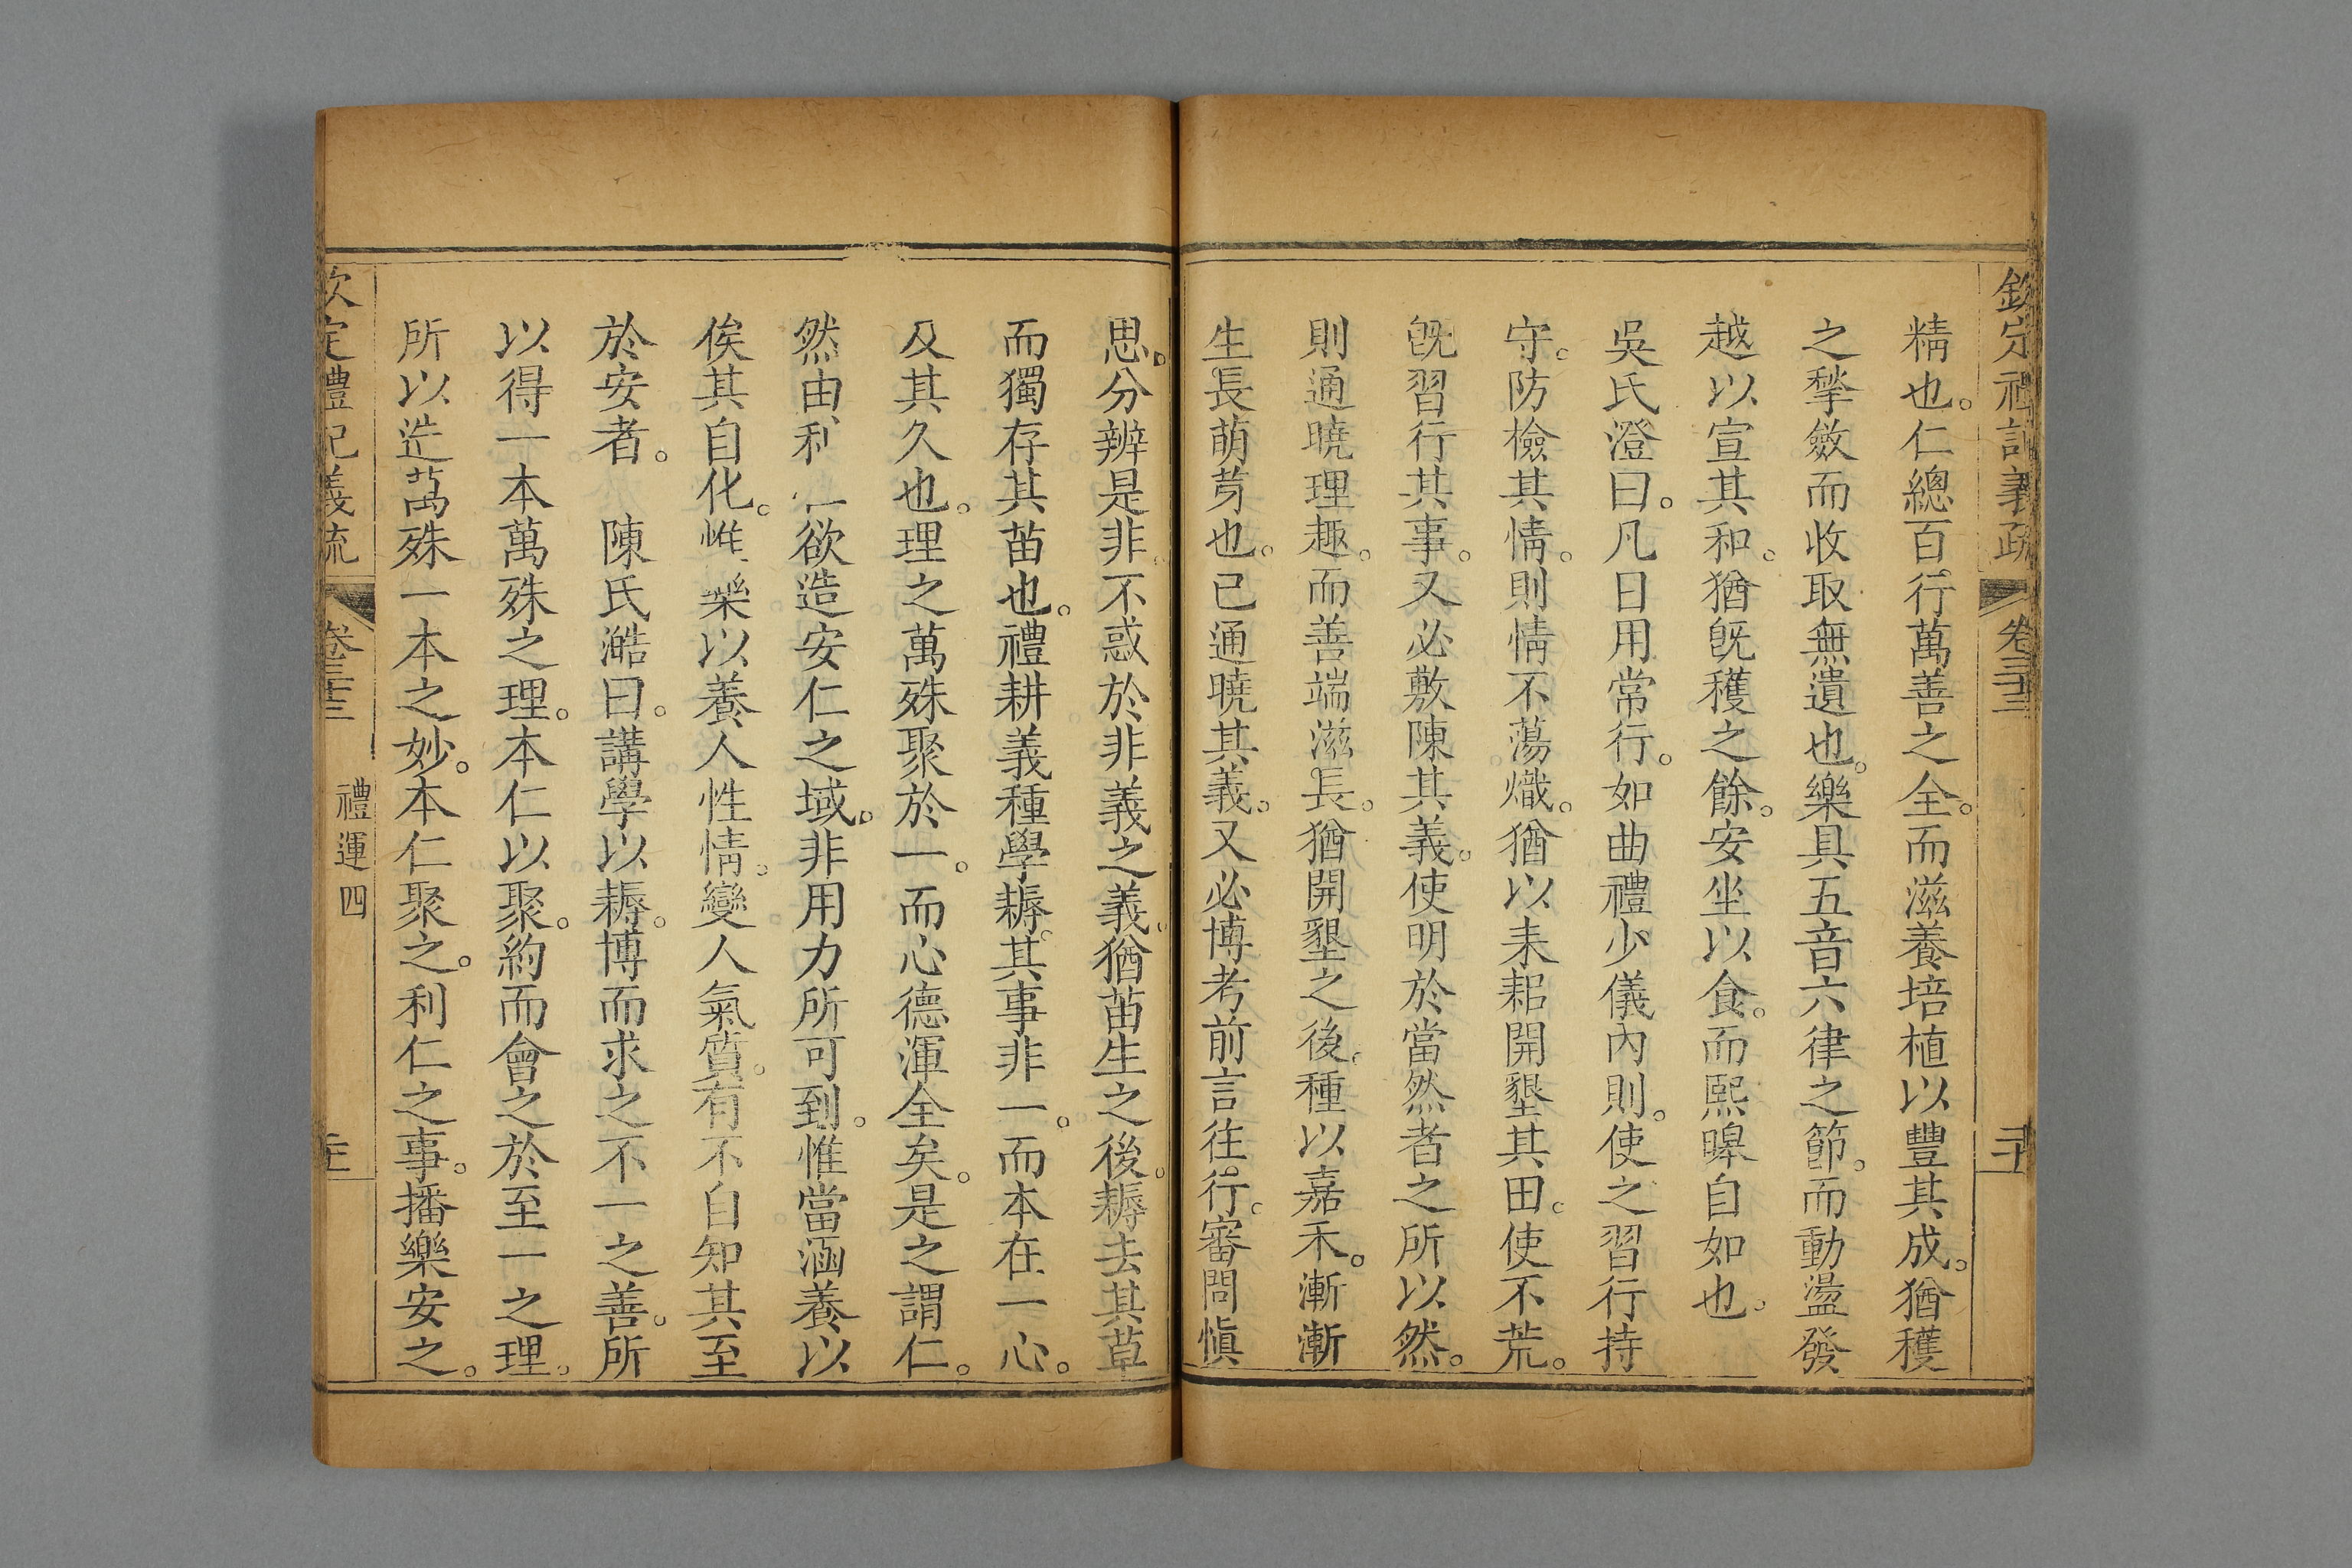 欽定禮記義疏 卷三十三 三十
精也。仁總百行萬善之全。而滋養培植以豐其成。猶穫
之揫斂而收取無遺也。樂具五音六律之節。而動盪發
越以宣其和。猶旣穫之餘。安坐以食。而熙皥自如也。
吳氏澄曰。凡日用常行。如曲禮少儀內則。使之習行持
守。防檢其情。則情不蕩熾。猶以耒耜開墾其田。使不荒。
旣習行其事。又必敷陳其義。使明於當然者之所以然。
則通曉理趣。而善端滋長。猶開墾之後。種以嘉禾。漸漸
生長萌芽也。已通曉其義。又必博考前言往行。審問愼
思。分辨是非。不惑於非義之義。猶苗生之後。耨去其草
而獨存其苗也。禮耕義種學耨。其事非一。而本在一心。
及其久也。理之萬殊聚於一。而心德渾全矣。是之謂仁。
然由利 欲造安仁之域。非用力所可到。惟當涵養以
俟其自化。惟樂以養人性情。變人氣質。有不自知其至
於安者。 陳氏澔曰。講學以耨。博而求之不一之善。所
以得一本萬殊之理。本仁以聚。約而會之於至一之理。
所以造萬殊一本之妙。本仁聚之。利仁之事。播樂安之。
欽定禮記義疏 卷三十三 禮運四